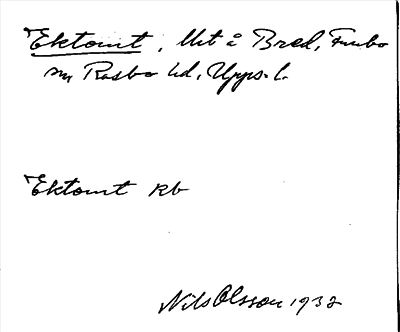 Ektomt, Ut å Bred, Funbo
sn, Rasbo hd, Upps. l.
Ektomt Rb
Nils Olsson 1932